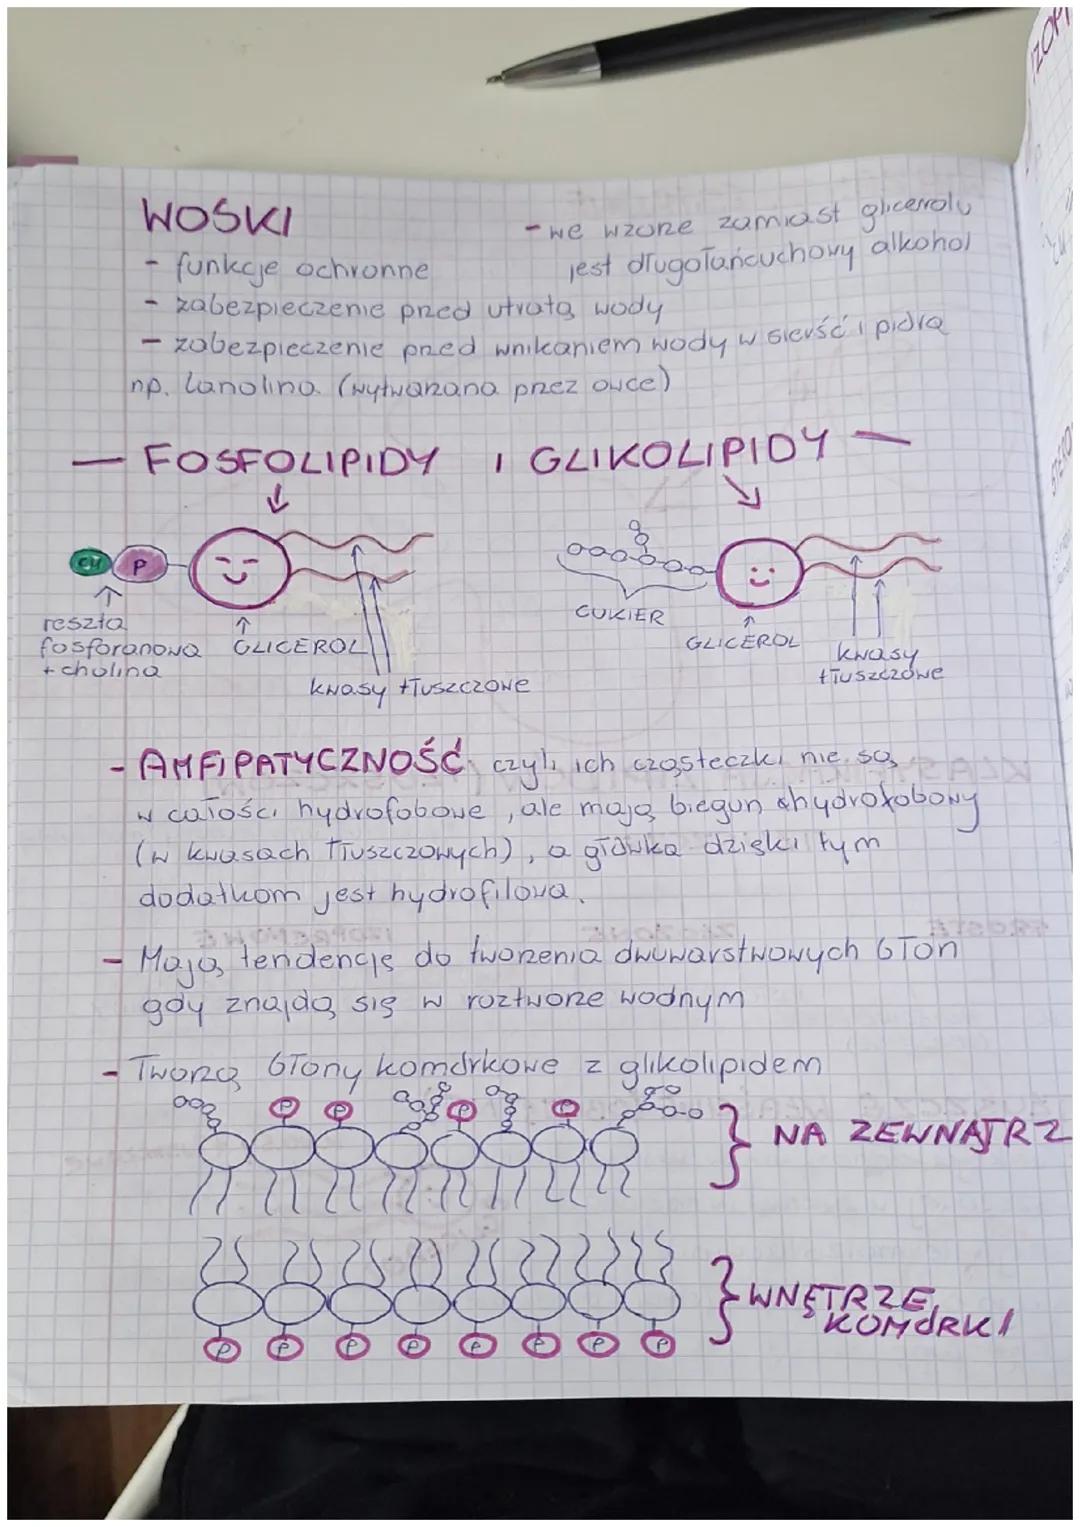 WOSKI
- we wzorze zamiast glicerolu
jest długołańcuchowy alkohol
- funkcje ochronne
- zabezpieczenie przed utratą wody
- zabezpieczenie przed wnikaniem wody w sierść i pióra
np. Lanolina (wytwarzana przez owce)
— FOSFOLIPIDY I GLIKOLIPIDY —
CH P
reszta
fosforanowa
+ cholina
GLICEROL
kwasy tłuszczowe
CUKIER
GLICEROL
kwasy
tłuszczowe
- AMFIPATYCZNOŚĆ, czyli ich cząsteczki nie są
w całości hydrofobowe, ale mają biegun hydrofobowy
(w kwasach tłuszczowych), a główka dzięki tym
dodatkom jest hydrofilowa.
- Mają tendencję do tworzenia dwuwarstwowych błon
gdy znajdą się w roztworze wodnym
- Tworzą błony komórkowe z glikolipidem
P P P P
NA ZEWNĄTRZ
WNĘTRZE
KOMÓRKI
P P P P P P P P